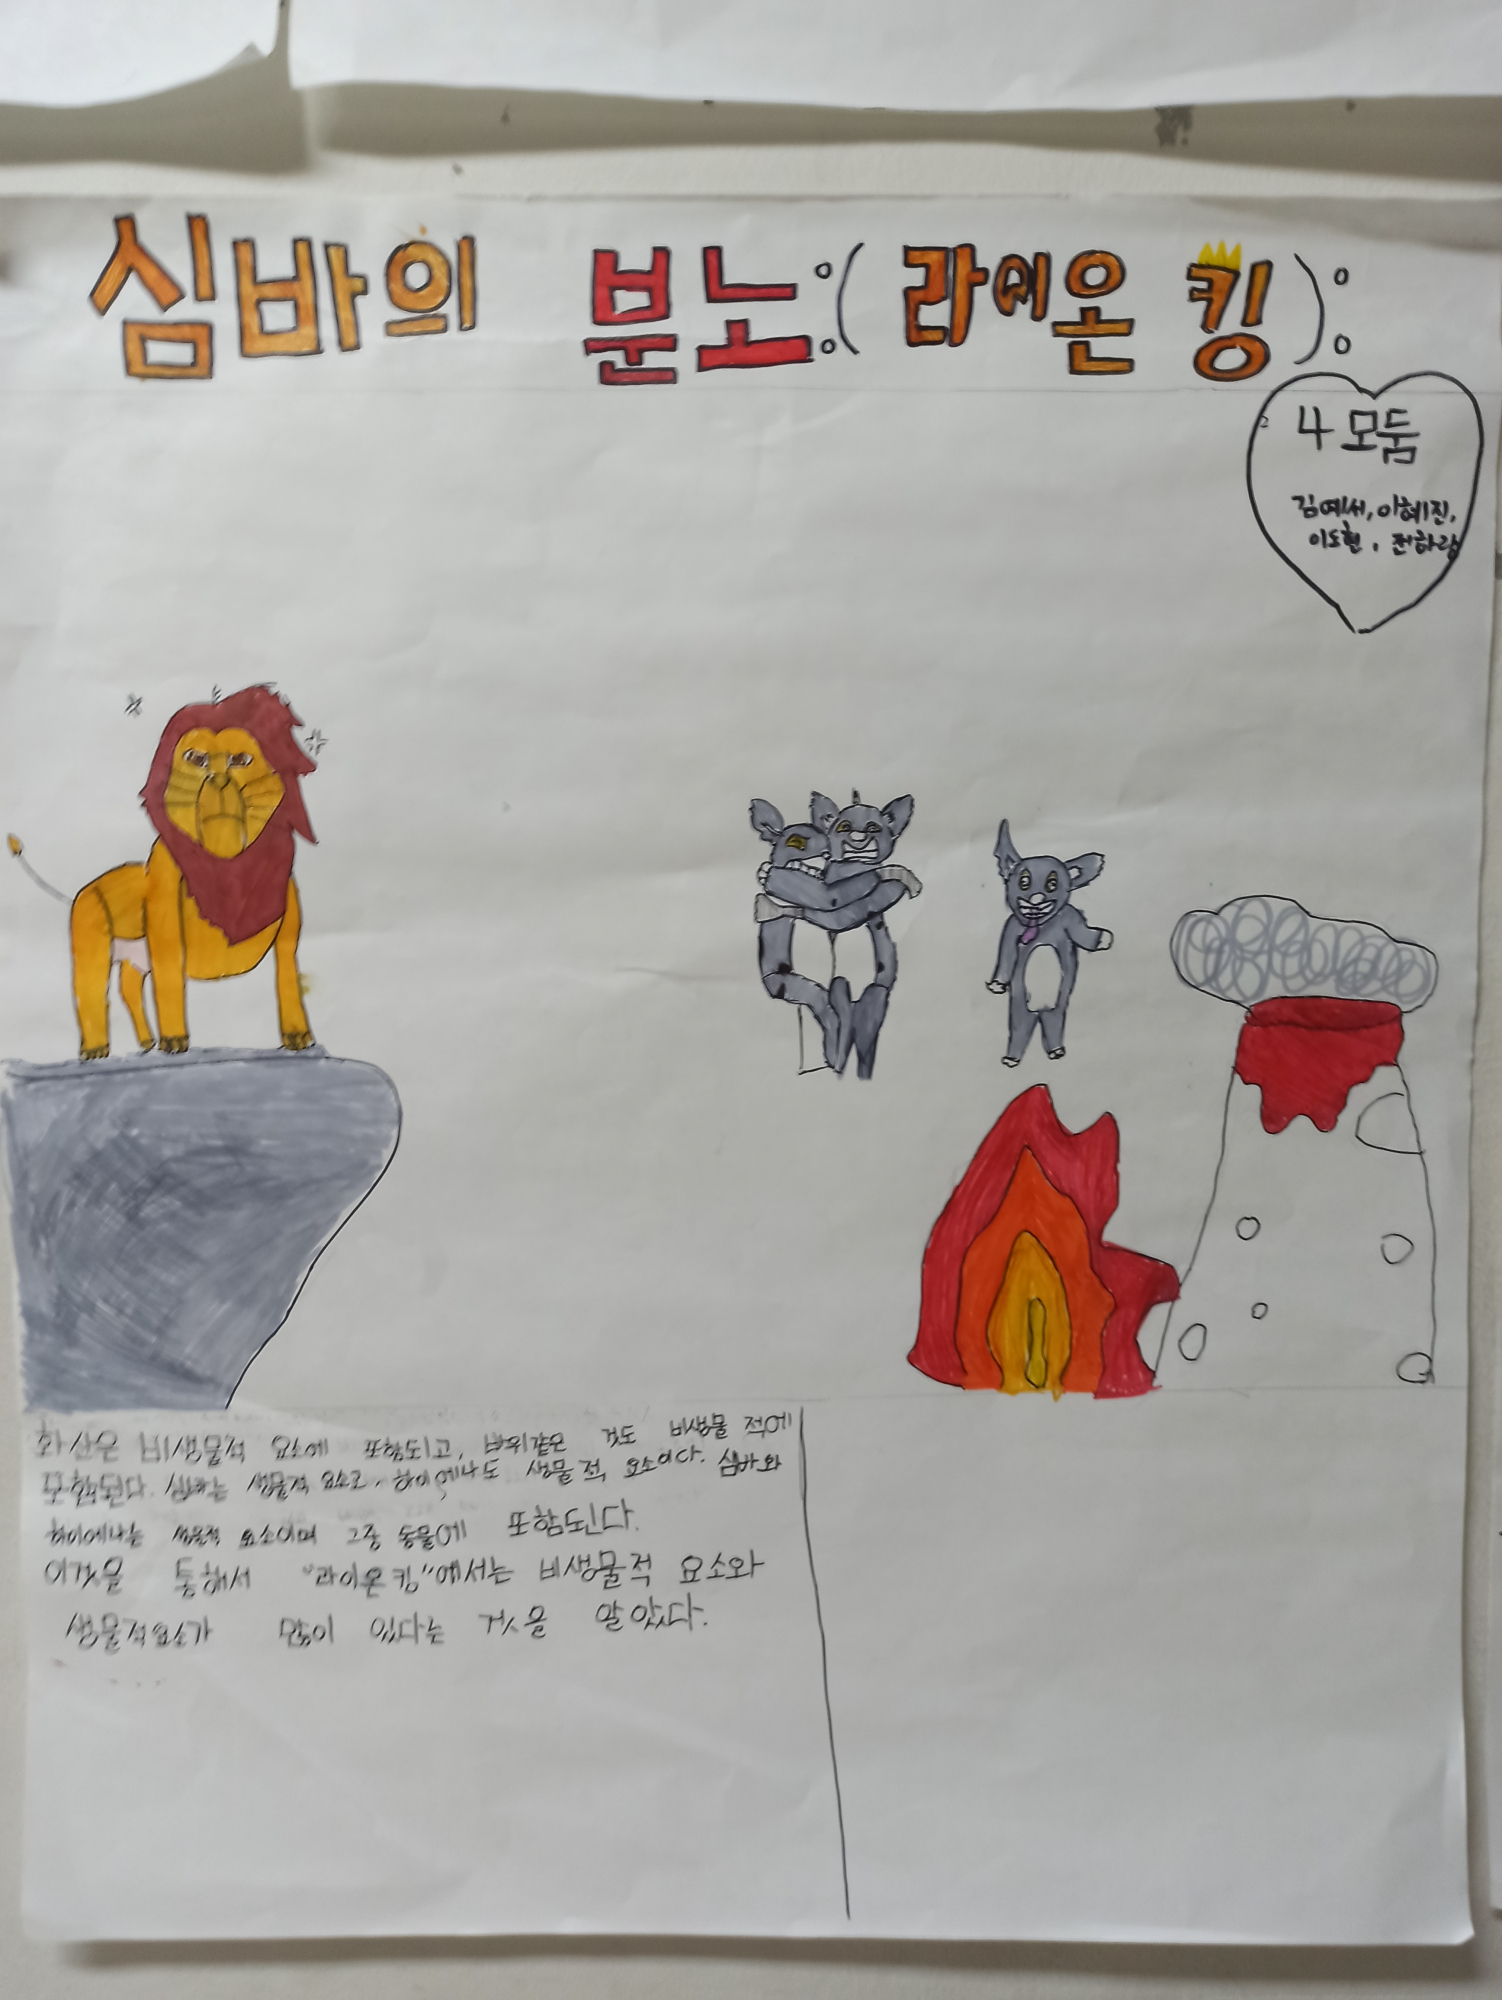 심바의 분노:(라이온 킹):
4 모둠
김예서, 이혜진,
이도현, 전하랑
화산은 비생물적 요소에 포함되고, 바위같은 것도 비생물 적에
포함된다. 심바는 생물적 요소고, 하이에나도 생물적 요소이다. 심바와
하이에나는 생물적 요소이며 그중 동물에 포함된다.
이것을 통해서 "라이온 킹"에서는 비생물적 요소와
생물적요소가 많이 있다는 것을 알았다.